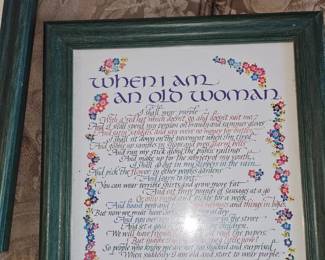 when i am
an old woman
I shall wear purple
With a red hat which doesn't go and doesn't suit me,
And I shall spend my pension on brandy and summer gloves
And satin sandals, and say we've no money for butter.
I shall sit down on the pavement when I'm tired
And gobble up samples in shops and press alarm bells
And run my stick along the public railings
And make up for the sobriety of my youth.
I shall go out in my slippers in the rain
And pick the flowers in other people's gardens
And learn to spit.
You can wear terrible shirts and grow more fat
And eat three pounds of sausages at a go
Or only bread and pickle for a week
And hoard pens and and things in boxes.
But now we must have
And pay our rent and not swear in the street
And set a good for the children.
We will have friends to dinner and read the papers.
But maybe I ought to practise a little now?
So people who know me are not too shocked and surprised
When suddenly I am old and start to wear purple.